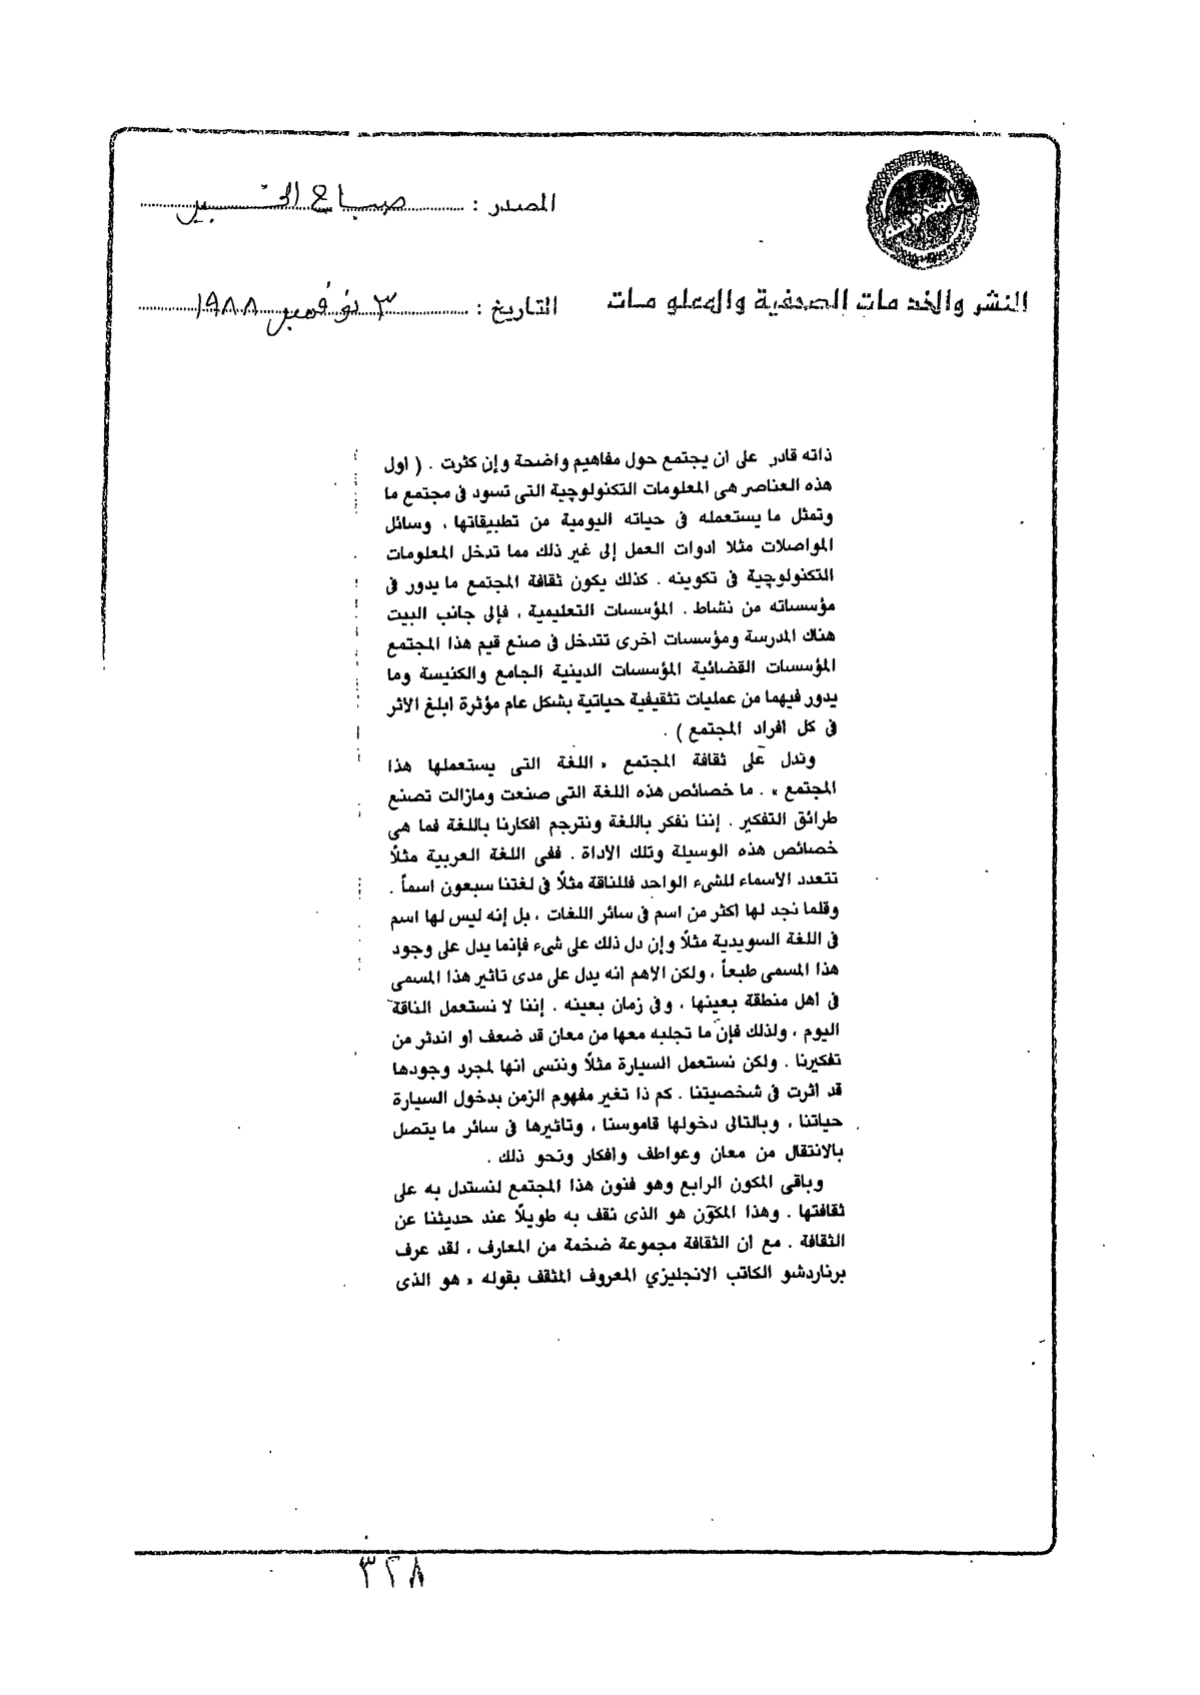 المصدر : صباح الخير
النشر والخدمات الصحفية والمعلومات
التاريخ : ٣ نوفمبر ١٩٨٨
ذاته قادر على ان يجتمع حول مفاهيم واضحة وإن كثرت . ( اول
هذه العناصر هى المعلومات التكنولوچية التى تسود فى مجتمع ما
وتمثل ما يستعمله فى حياته اليومية من تطبيقاتها ، وسائل
المواصلات مثلا ادوات العمل إلى غير ذلك مما تدخل المعلومات
التكنولوچية فى تكوينه . كذلك يكون ثقافة المجتمع ما يدور فى
مؤسساته من نشاط . المؤسسات التعليمية ، فإلى جانب البيت
هناك المدرسة ومؤسسات اخرى تتدخل فى صنع قيم هذا المجتمع
المؤسسات القضائية المؤسسات الدينية الجامع والكنيسة وما
يدور فيهما من عمليات تثقيفية حياتية بشكل عام مؤثرة ابلغ الاثر
فى كل افراد المجتمع ) .
وتدل على ثقافة المجتمع « اللغة التى يستعملها هذا
المجتمع » . ما خصائص هذه اللغة التى صنعت ومازالت تصنع
طرائق التفكير . إننا نفكر باللغة ونترجم افكارنا باللغة فما هى
خصائص هذه الوسيلة وتلك الاداة . ففى اللغة العربية مثلاً
تتعدد الاسماء للشىء الواحد فللناقة مثلاً فى لغتنا سبعون اسماً .
وقلما نجد لها اكثر من اسم فى سائر اللغات ، بل إنه ليس لها اسم
فى اللغة السويدية مثلاً وإن دل ذلك على شىء فإنما يدل على وجود
هذا المسمى طبعاً ، ولكن الاهم انه يدل على مدى تاثير هذا المسمى
فى اهل منطقة بعينها ، وفى زمان بعينه . إننا لا نستعمل الناقة
اليوم ، ولذلك فإن ما تجلبه معها من معان قد ضعف او اندثر من
تفكيرنا . ولكن نستعمل السيارة مثلاً وننسى انها لمجرد وجودها
قد اثرت فى شخصيتنا . كم ذا تغير مفهوم الزمن بدخول السيارة
حياتنا ، وبالتالى دخولها قاموسنا ، وتاثيرها فى سائر ما يتصل
بالانتقال من معان وعواطف وافكار ونحو ذلك .
وباقى المكون الرابع وهو فنون هذا المجتمع لنستدل به على
ثقافتها . وهذا المكوّن هو الذى نقف به طويلاً عند حديثنا عن
الثقافة . مع ان الثقافة مجموعة ضخمة من المعارف ، لقد عرف
برناردشو الكاتب الانجليزي المعروف المثقف بقوله « هو الذى
٣٢٨